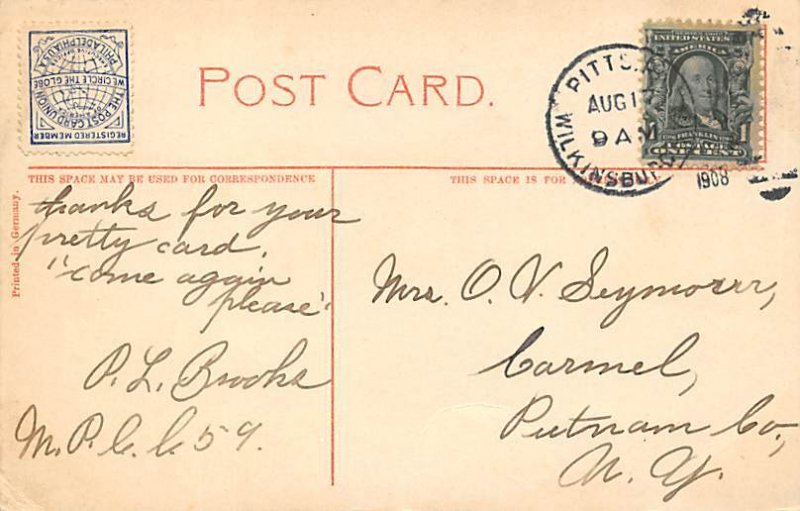 REGISTERED MEMBER
THE POST CARD UNION
OF AMERICA
WE CIRCLE THE GLOBE
PHILADELPHIA U.S.A.
POST CARD.
PITTS.
AUG 1
9 AM
WILKINSBURG
1908
UNITED STATES
AMERICA
FRANKLIN
1
THIS SPACE MAY BE USED FOR CORRESPONDENCE
THIS SPACE IS FOR
Printed in Germany.
thanks for your
pretty card,
"come again
please"
P. L. Brooks
M. P. C. C. 59.
Mrs. O. V. Seymour,
Carmel,
Putnam Co,
N. Y.